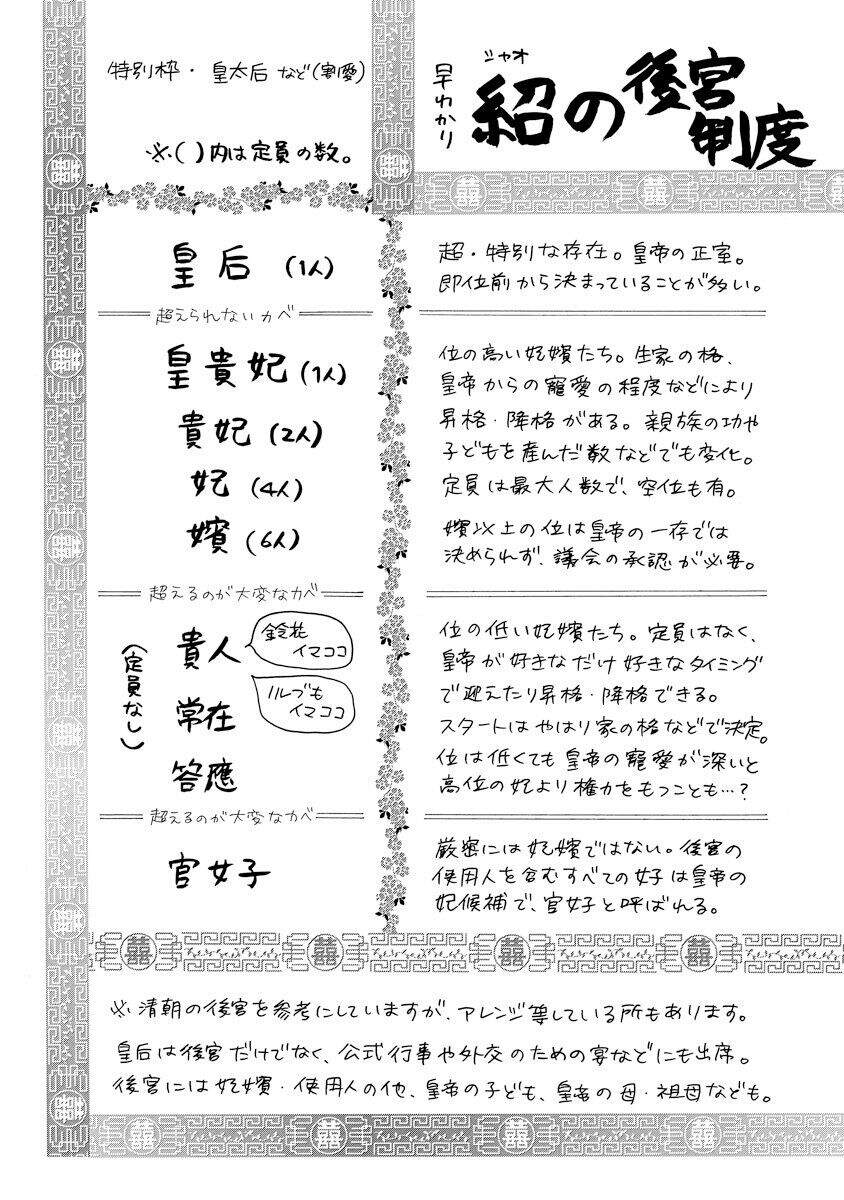 早わかり
紹の後宮制度
シャオ
特別枠・皇太后など(割愛)
※( )内は定員の数。
皇后(1人)
超・特別な存在。皇帝の正室。
即位前から決まっていることが多い。
超えられないカベ
皇貴妃(1人)
貴妃(2人)
妃(4人)
嬪(6人)
位の高い妃嬪たち。生家の格、
皇帝からの寵愛の程度などにより
昇格・降格がある。親族の功や
子どもを産んだ数などでも変化。
定員は最大人数で、空位も有。
嬪以上の位は皇帝の一存では
決められず、議会の承認が必要。
超えるのが大変なカベ
(定員なし)
貴人
鈴花
イマココ
常在
ハルヅも
イマココ
答應
位の低い妃嬪たち。定員はなく、
皇帝が好きなだけ好きなタイミング
で迎えたり昇格・降格できる。
スタートはやはり家の格などで決定。
位は低くても皇帝の寵愛が深いと
高位の妃より権力をもつことも…?
超えるのが大変なカベ
官女子
厳密には妃嬪ではない。後宮の
使用人を含むすべての女子は皇帝の
妃候補で、官女子と呼ばれる。
※清朝の後宮を参考にしていますが、アレンジ等している所もあります。
皇后は後宮だけでなく、公式行事や外交のための宴などにも出席。
後宮には妃嬪・使用人の他、皇帝の子ども、皇帝の母・祖母なども。